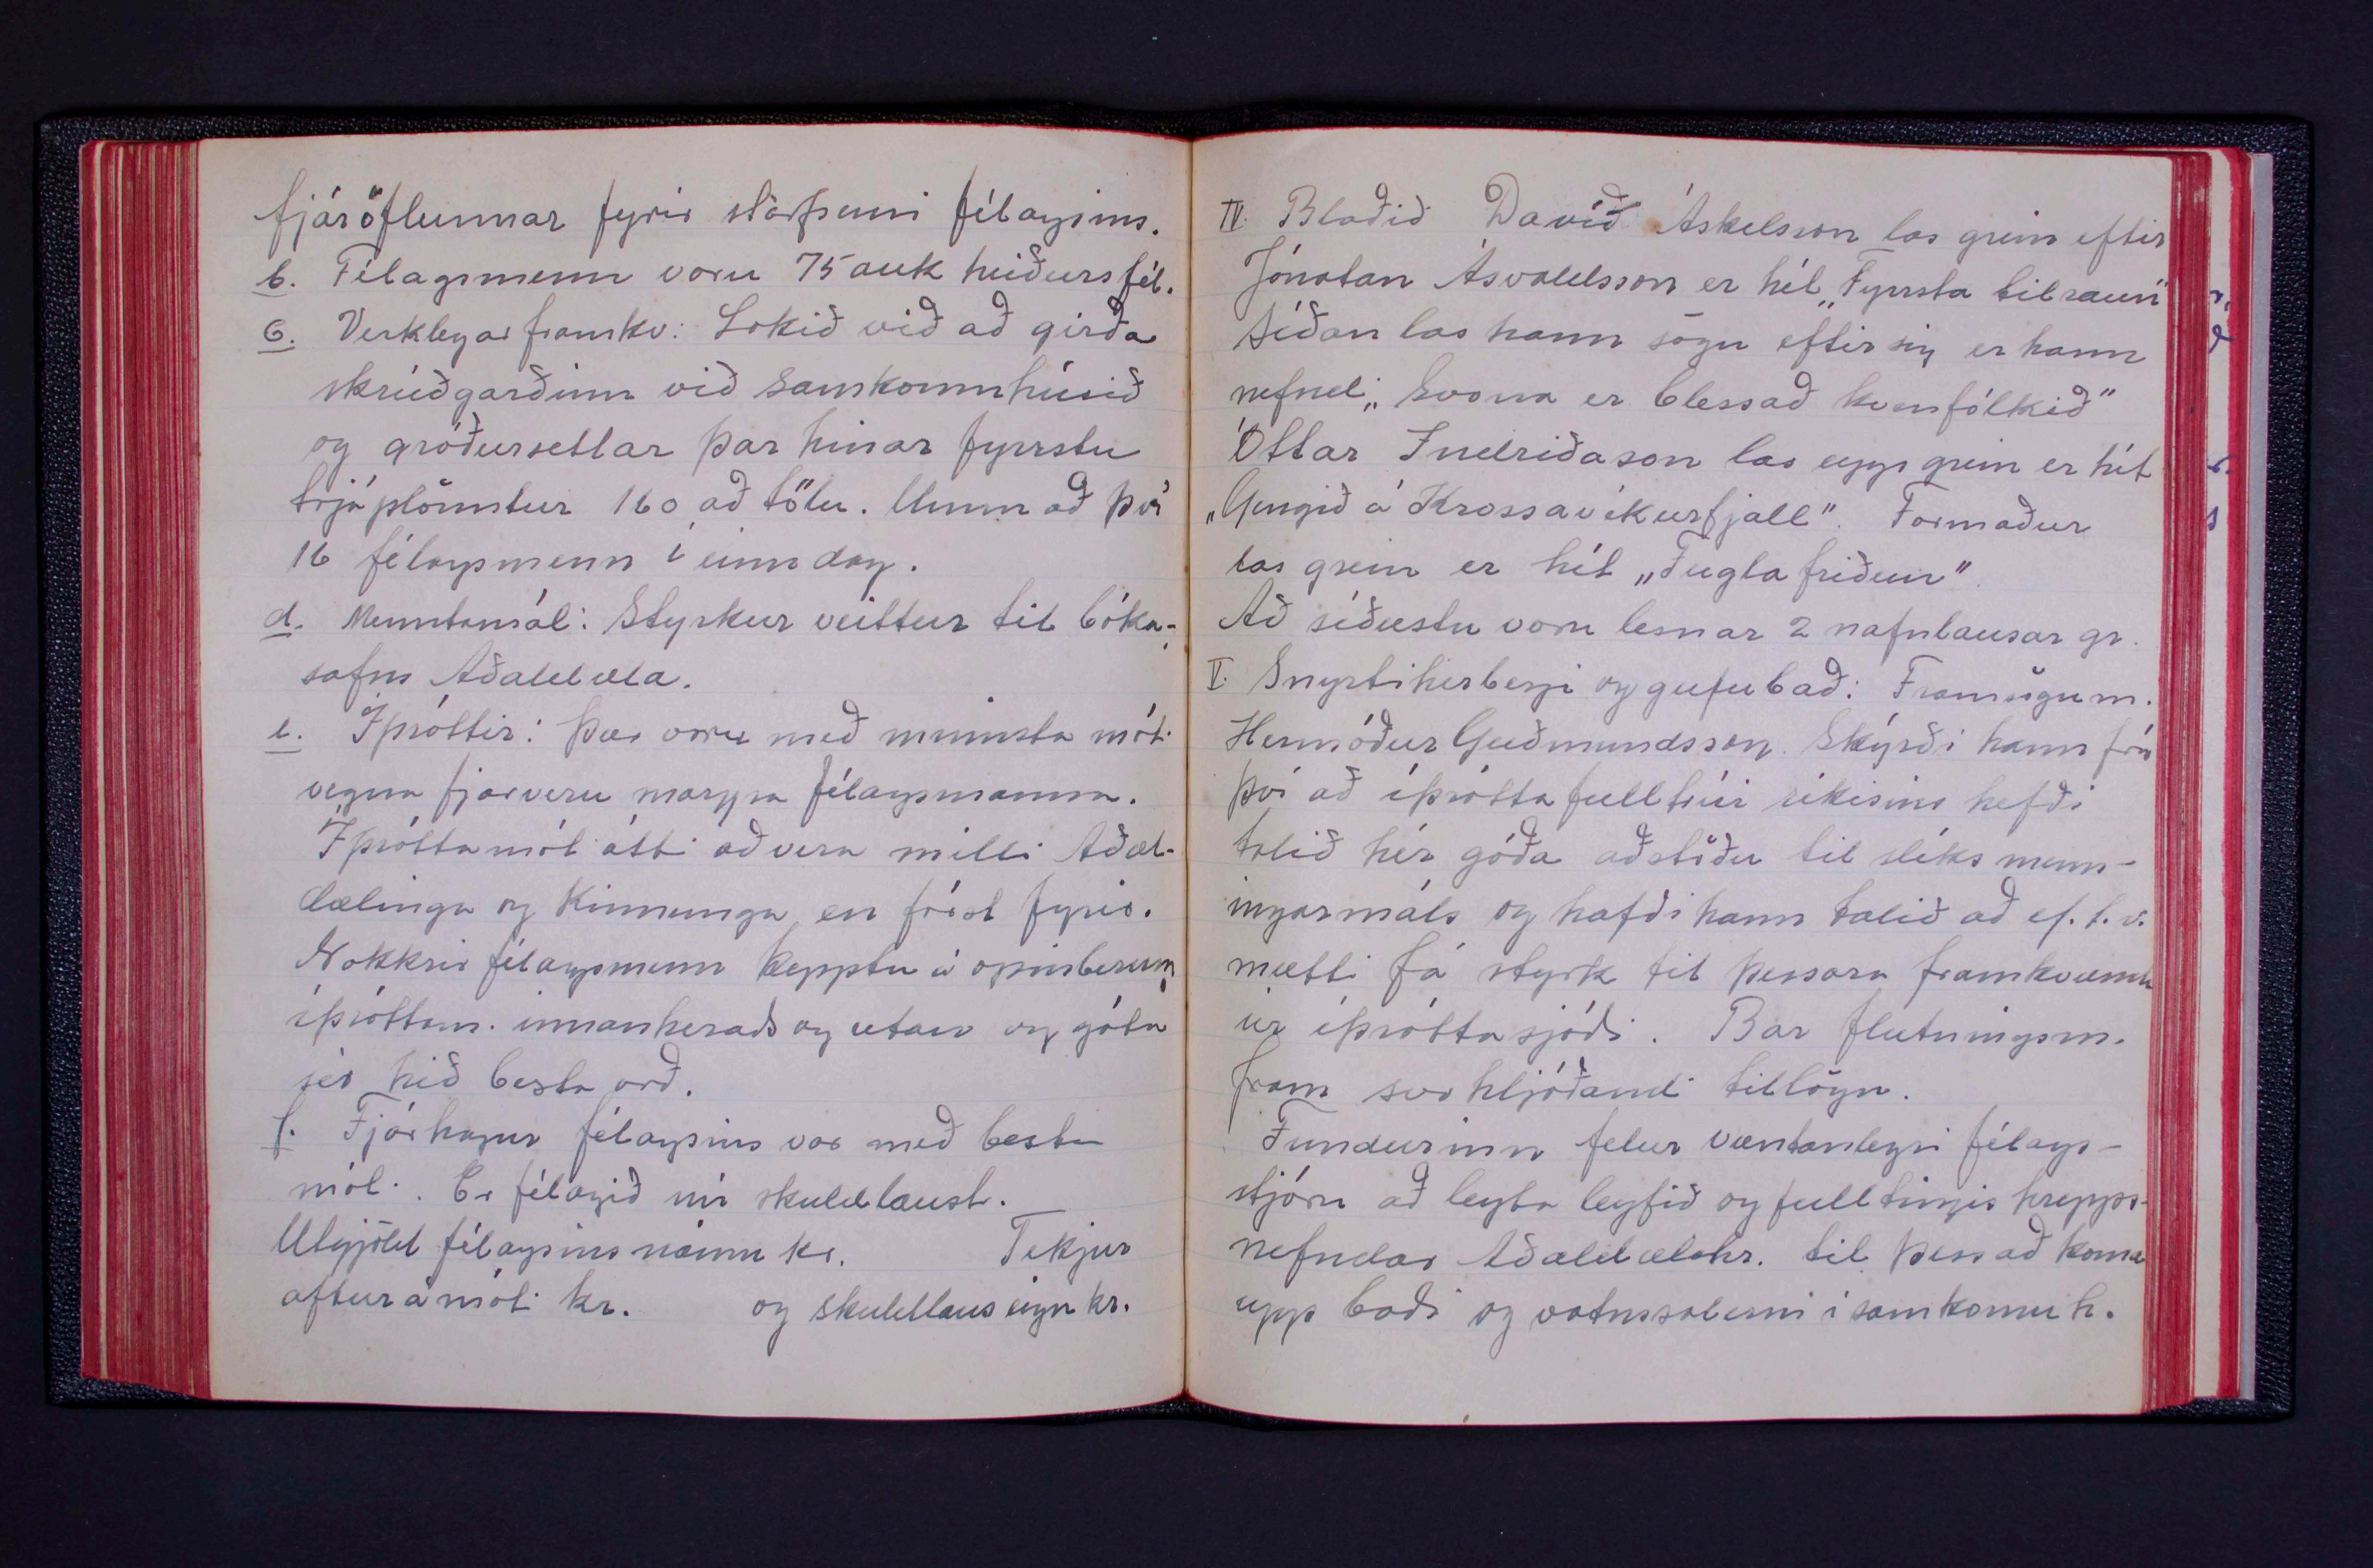 fjáröflunnar fyrir starfsemi félagsins.
b. Félagsmenn voru 75 auk heiðursfél.
c. Verklegar framkv: Lokið við að girða
skrúðgarðinn við samkomuhúsið
og gróðursettar þar hinar fyrstu
trjáplöntur 160 að tölu. Unnu að því
16 félagsmenn í einn dag.
d. Menntamál: Styrkur veittur til bóka-
safns Aðaldæla.
e. Íþróttir: Þær voru með minnsta móti
vegna fjarveru margra félagsmanna.
Íþróttamót átti að vera milli Aðal-
dælinga og Kinnunga, en fórst fyrir.
Nokkrir félagsmenn kepptu á opinberum
íþróttam. innanheraðs og utan og gátu
sér hið besta orð.
f. Fjárhagur félagsins var með besta
móti. Er félagið nú skuldlaust.
Utgjöld félagsins námu kr. Tekjur
aftur á móti kr. og skuldlaus eign kr.
IV. Blaðið Davíð Áskelsson las grein eftir
Jónatan Ásvaldsson er hét „Fyrsta tilraun"
Síðan las hann sögu eftir sig er hann
nefndi „Svona er blessað kvenfólkið"
Óttar Indriðason las upp grein er hét
„Gengið á Krossavíkurfjall". Formaður
las grein er hét „Fuglafriðun".
Að síðustu voru lesnar 2 nafnlausar gr.
V. Snyrtiherbergi og gufubað: Framsögum.
Hermóður Guðmundsson. Skýrði hann frá
því að íþróttafulltrúi ríkisins hefði
talið hér góða aðstöðu til slíks menn-
ingarmáls og hafði hann talið að ef. t. v.
mætti fá styrk til þessara framkvæmda
úr íþróttasjóði. Bar flutningsm.
fram svo hljóðandi tillögu.
Fundurinn felur væntanlegri félags-
stjórn að leyta leyfið og fulltingis hrepps-
nefndar Aðaldælahr. til þess að koma
upp baði og vatnssalerni í samkomuh.